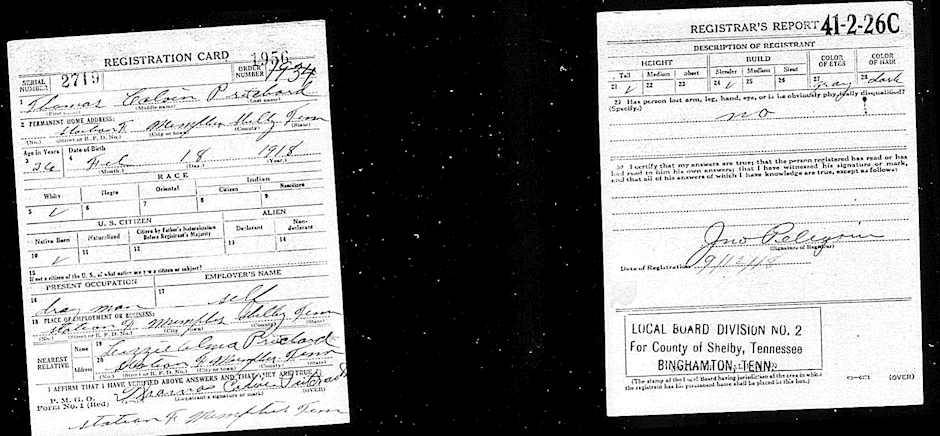 REGISTRATION CARD 1956
SERIAL NUMBER 2719 ORDER NUMBER 1934
1 Thomas Calvin Pritchard
(First name) (Middle name) (Last name)
2 PERMANENT HOME ADDRESS:
Station F. Memphis Shelby Tenn
(No.) (Street or R. F. D. No.) (City or town) (County) (State)
Age in Years Date of Birth
3 4 18 1918
(Month.) (Day.) (Year.)
RACE
White Negro Oriental Indian
Citizen Noncitizen
5 ✓ 6 7 8 9
U. S. CITIZEN ALIEN
Native Born Naturalized Citizen by Father's Naturalization Before Registrant's Majority Declarant Non-declarant
10 ✓ 11 12 13 14
15
If not a citizen of the U. S., of what nation are you a citizen or subject?
PRESENT OCCUPATION EMPLOYER'S NAME
16 dray man 17 self
18 PLACE OF EMPLOYMENT OR BUSINESS:
Station F Memphis Shelby Tenn
(No.) (Street or R. F. D. No.) (City or town) (County) (State)
NEAREST RELATIVE
Name 19 Pritchard
Address 20 Station F Memphis Tenn
(No.) (Street or R. F. D. No.) (City or town) (County) (State)
I AFFIRM THAT I HAVE VERIFIED ABOVE ANSWERS AND THAT THEY ARE TRUE
P. M. G. O.
Form No. 1 (Red) Thomas Calvin Pritchard
(Registrant's signature or mark) (OVER)
Station F Memphis Tenn
REGISTRAR'S REPORT 41-2-26C
DESCRIPTION OF REGISTRANT
HEIGHT BUILD COLOR OF EYES COLOR OF HAIR
Tall Medium Short Slender Medium Stout
21 ✓ 22 23 24 ✓ 25 26 27 gray 28 dark
29 Has person lost arm, leg, hand, eye, or is he obviously physically disqualified?
(Specify.) no
30 I certify that my answers are true; that the person registered has read or has
had read to him his own answers; that I have witnessed his signature or mark,
and that all of his answers of which I have knowledge are true, except as follows:
Jno Pelegrin
(Signature of Registrar)
Date of Registration 9/12/18
LOCAL BOARD DIVISION NO. 2
For County of Shelby, Tennessee
BINGHAMTON, TENN.
(The stamp of the Local Board having jurisdiction of the area in which
the registrant has his permanent home shall be placed in this box.)
(OVER)